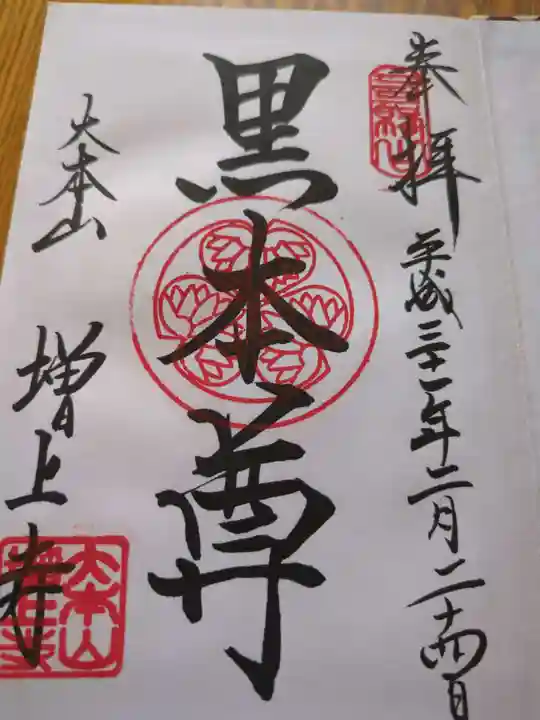 奉拝
平成三十一年二月二十四日
黒本尊
大本山
増上寺
大本山
増上寺